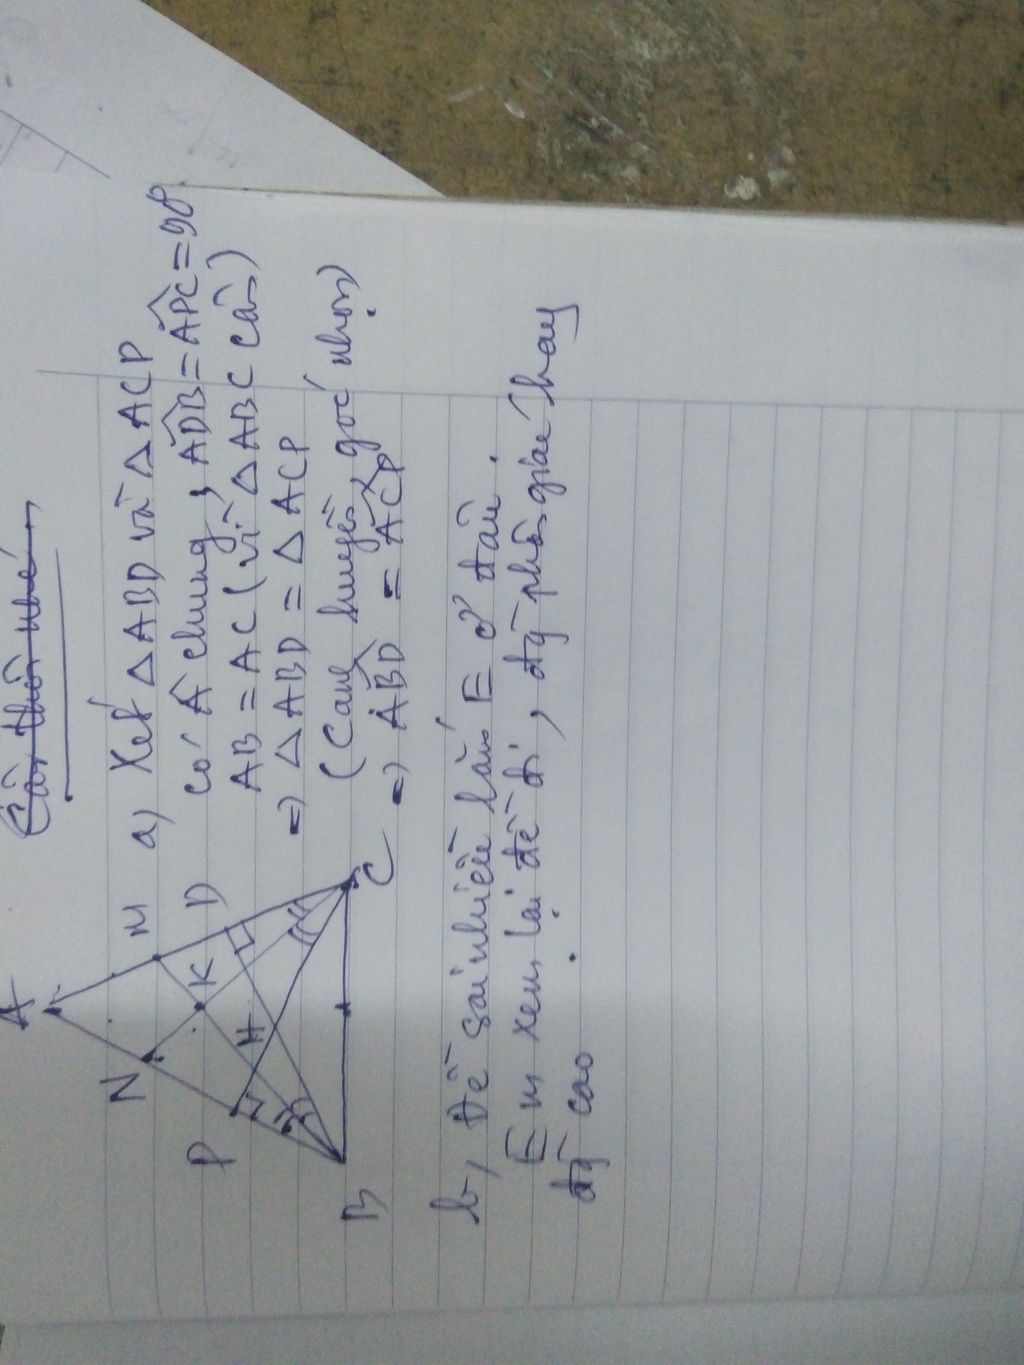 Cần thôi nhé
A
N
M
P
K
D
H
B
C
a) Xét △ABD và △ACP
có Â chung, ADB̂ = APĈ = 90
AB = AC (vì △ABC cân)
=) △ABD = △ACP
(Cạnh huyền, góc nhọn)
=) ABD̂ = ACP̂
b, Đề sai nhiều lắm E ở đâu.
Em xem lại đề đi, đg phân giác hay
đg cao